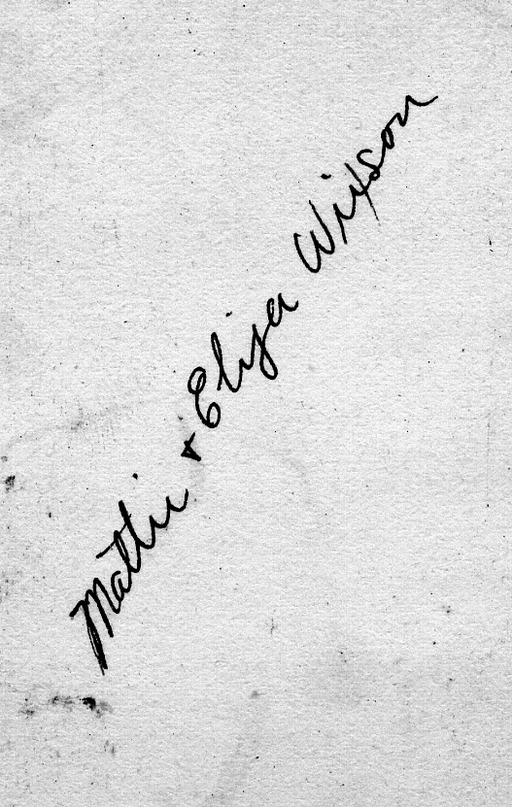 Mattie & Eliza Wixson